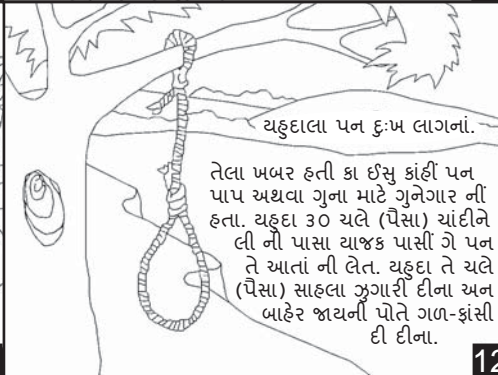 યહુદાલા પન દુઃખ લાગનાં.
તેલા ખબર હતી કા ઈસુ કાંહીં પન
પાપ અથવા ગુના માટે ગુનેગાર નીં
હતા. યહુદા ૩૦ ચલે (પૈસા) ચાંદીને
લી ની પાસા યાજક પાસીં ગે પન
તે આતાં ની લેત. યહુદા તે ચલે
(પૈસા) સાહલા ઝુગારી દીના અન
બાહેર જાયની પોતે ગળ-ફાંસી
દી દીના.
12